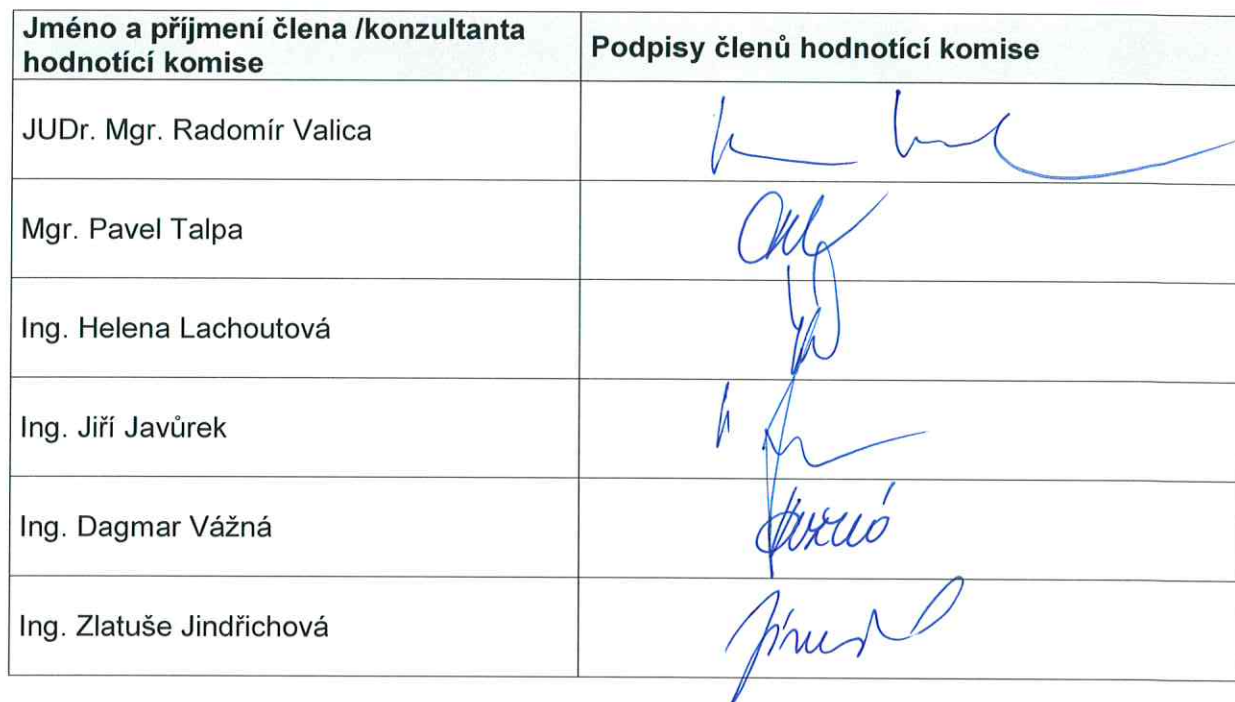 Jméno a příjmení člena /konzultanta
hodnotící komise
Podpisy členů hodnotící komise
JUDr. Mgr. Radomír Valica
Mgr. Pavel Talpa
Ing. Helena Lachoutová
Ing. Jiří Javůrek
Ing. Dagmar Vážná
Ing. Zlatuše Jindřichová